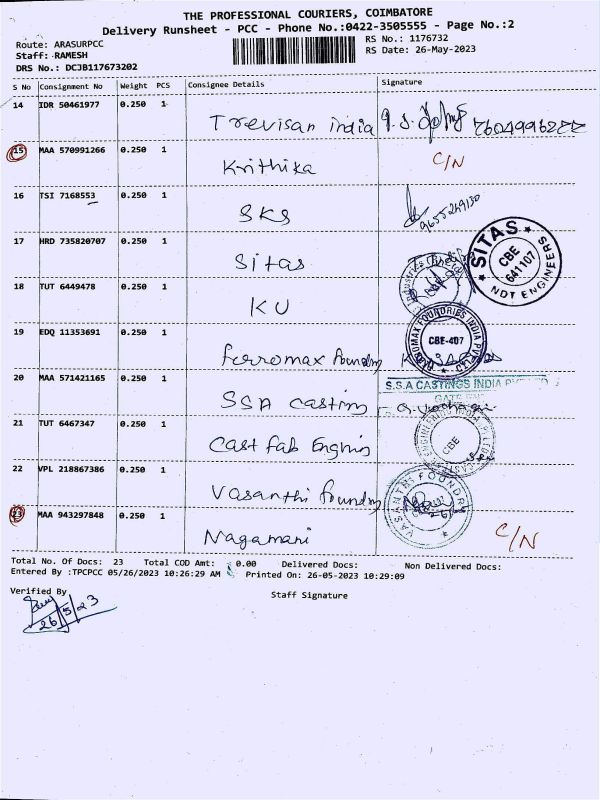 THE PROFESSIONAL COURIERS, COIMBATORE
Delivery Runsheet - PCC - Phone No.:0422-3505555 - Page No.:2
Route: ARASURPCC
Staff: RAMESH
DRS No.: DCJB117673202
RS No.: 1176732
RS Date: 26-May-2023
S No Consignment No Weight PCS Consignee Details Signature
14 IDR 50461977 0.250 1 Trevisan india
15 MAA 570991266 0.250 1 Krithika C/N
16 TSI 7168553 0.250 1 SKS 9655269130
17 HRD 735820707 0.250 1 Sitas SITAS CBE 641107 NDT ENGINEERS
18 TUT 6449478 0.250 1 KU
19 EDQ 11353691 0.250 1 ferromax foundry CBE-407
20 MAA 571421165 0.250 1 SSA casting S.S.A CASTINGS INDIA
21 TUT 6467347 0.250 1 Cast fab CBE
22 VPL 218867386 0.250 1 Vasanthi foundry VASANTHI FOUNDRY
23 MAA 943297848 0.250 1 Nagamani C/N
Total No. Of Docs: 23 Total COD Amt: 0.00 Delivered Docs: Non Delivered Docs:
Entered By :TPCPCC 05/26/2023 10:26:29 AM Printed On: 26-05-2023 10:29:09
Verified By
26/5/23
Staff Signature